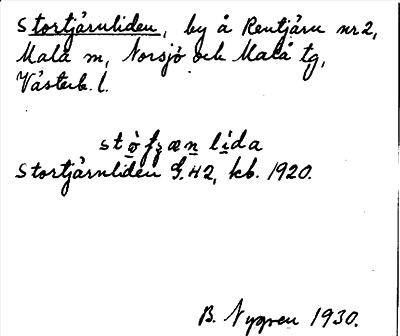 Stortjärnliden, by å Rentjärn nr 2,
Malå m, Norsjö och Malå tg,
Västerb. l.
stǫ̀fʐæn lída
Stortjärnliden G.42, kb. 1920.
B. Nygren 1930.